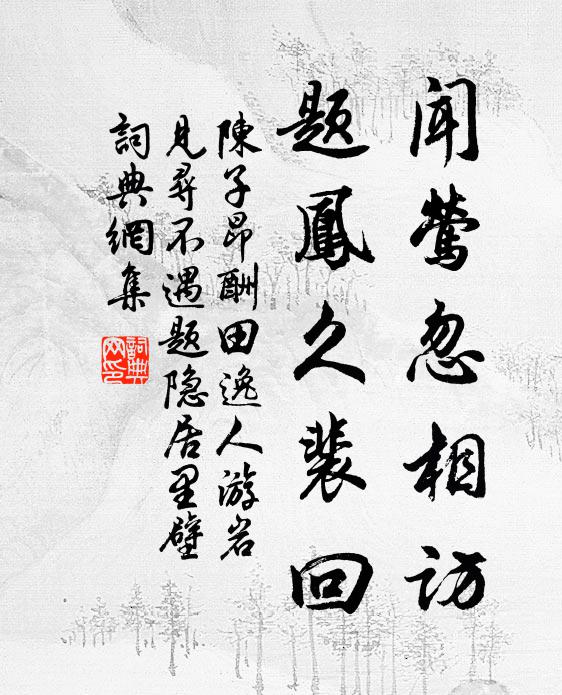 闻莺忽相访
题鳳久裴回
陳子昂酬田逸人游岩
見尋不遇题隐居里壁
詞典網集
詞典网印